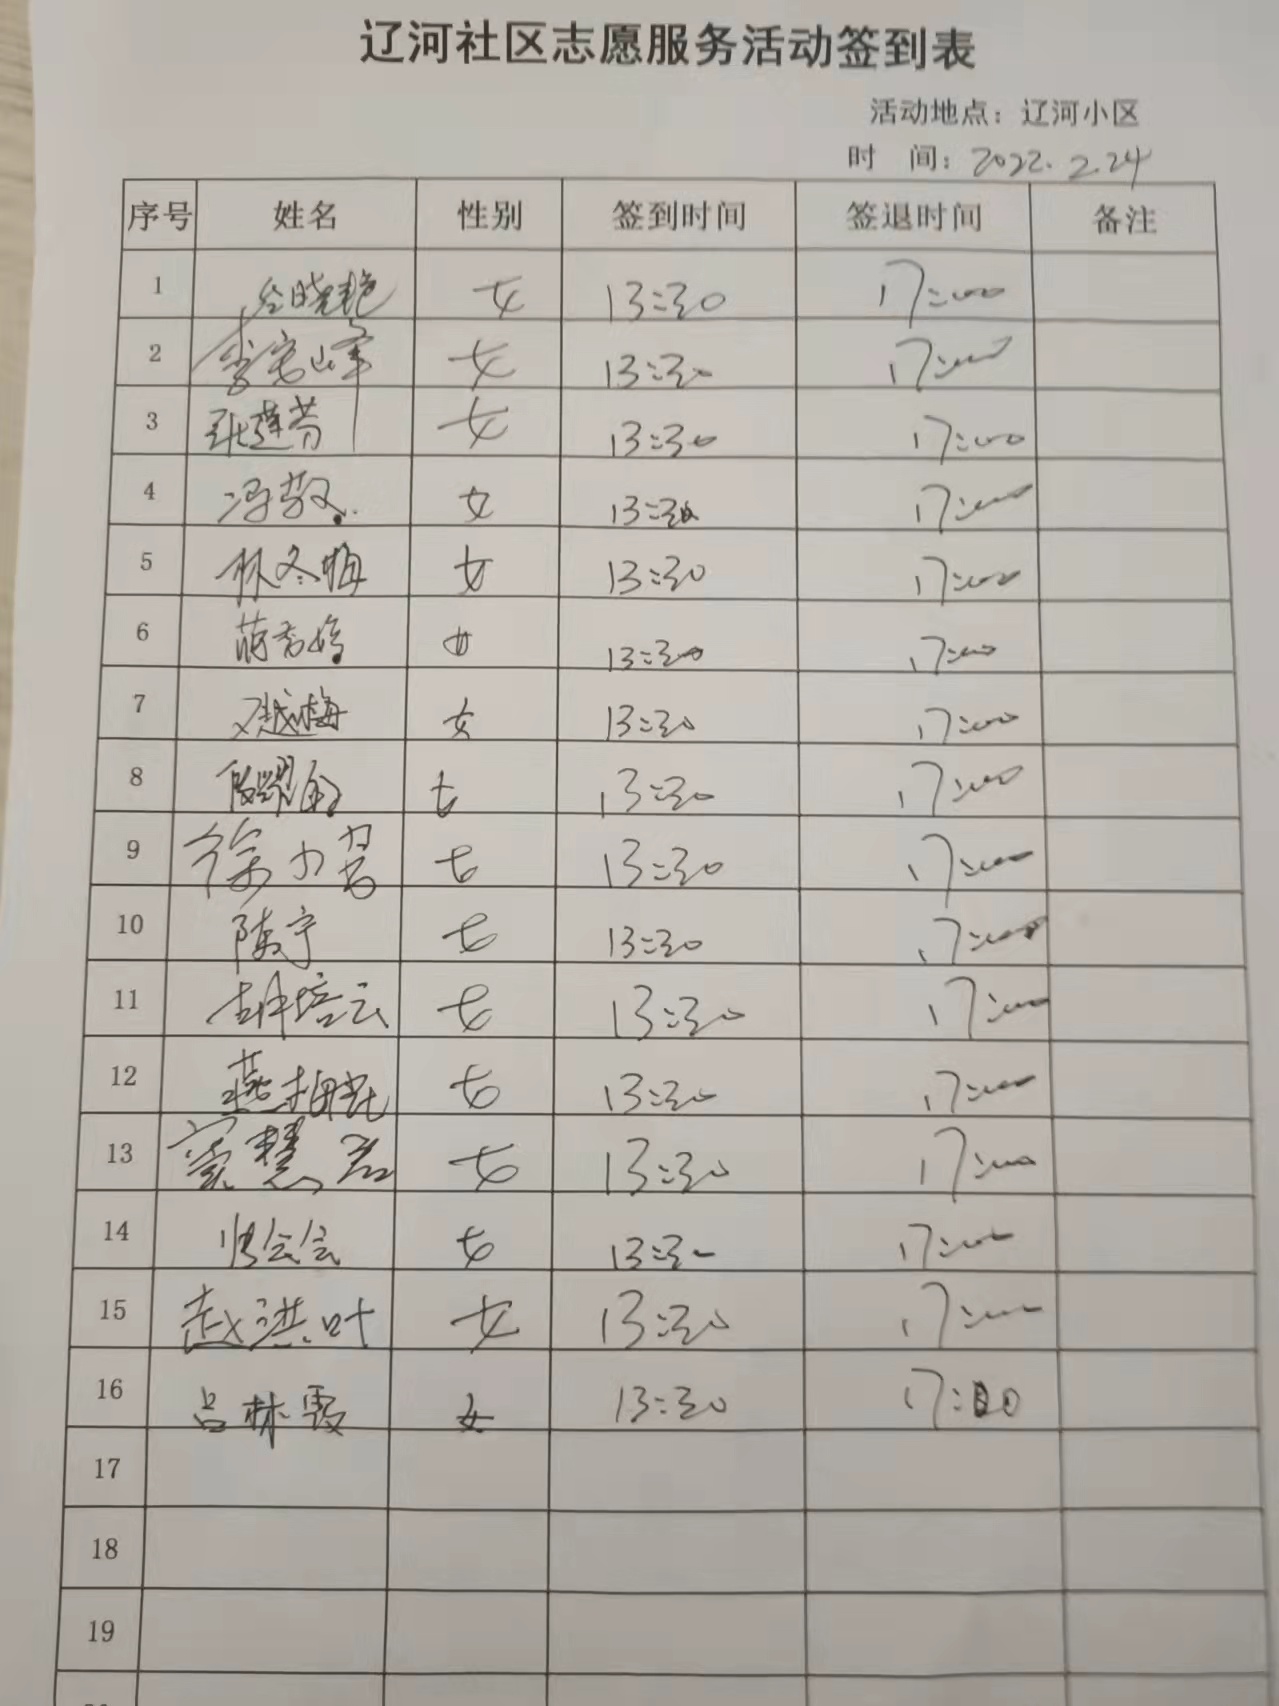 辽河社区志愿服务活动签到表
活动地点：辽河小区
时 间：2022.2.24
序号 姓名 性别 签到时间 签退时间 备注
1 女 13:30 17:00
2 女 13:30 17:00
3 张莲芳 女 13:30 17:00
4 冯敬 女 13:30 17:00
5 林冬梅 女 13:30 17:00
6 女 13:30 17:00
7 女 13:30 17:00
8 女 13:30 17:00
9 女 13:30 17:00
10 陈宁 女 13:30 17:00
11 胡培云 女 13:30 17:00
12 女 13:30 17:00
13 女 13:30 17:00
14 女 13:30 17:00
15 赵洪叶 女 13:30 17:00
16 吕林霞 女 13:30 17:00
17
18
19